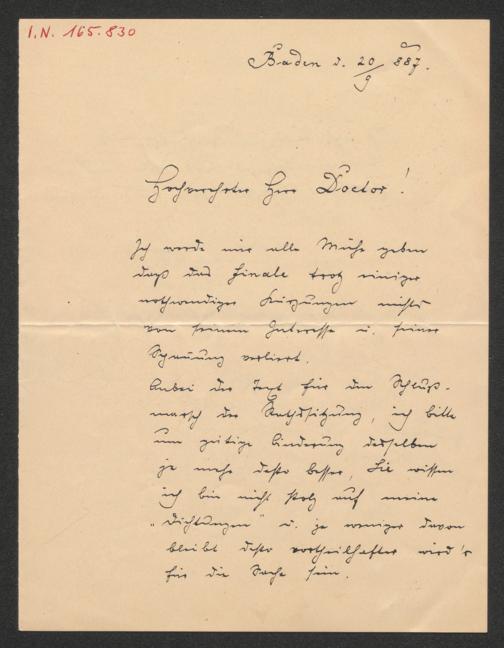 I.N. 165.830
Baden d. 20/9 887.
Hochverehrter Herr Doctor!
Ich werde mir alle Mühe geben
daß das Finale trotz einiger
nothwendiger Kürzungen nichts
von seinem Interesse u. seiner
Spannung verliert.
Anbei der Text für den Schluß-
marsch der Rathssitzung, ich bitte
um gütige Änderung desselben
je mehr desto besser, Sie wissen
ich bin nicht stolz auf meine
„Dichtungen" u. je weniger davon
bleibt desto vortheilhafter wird's
für die Sache sein.